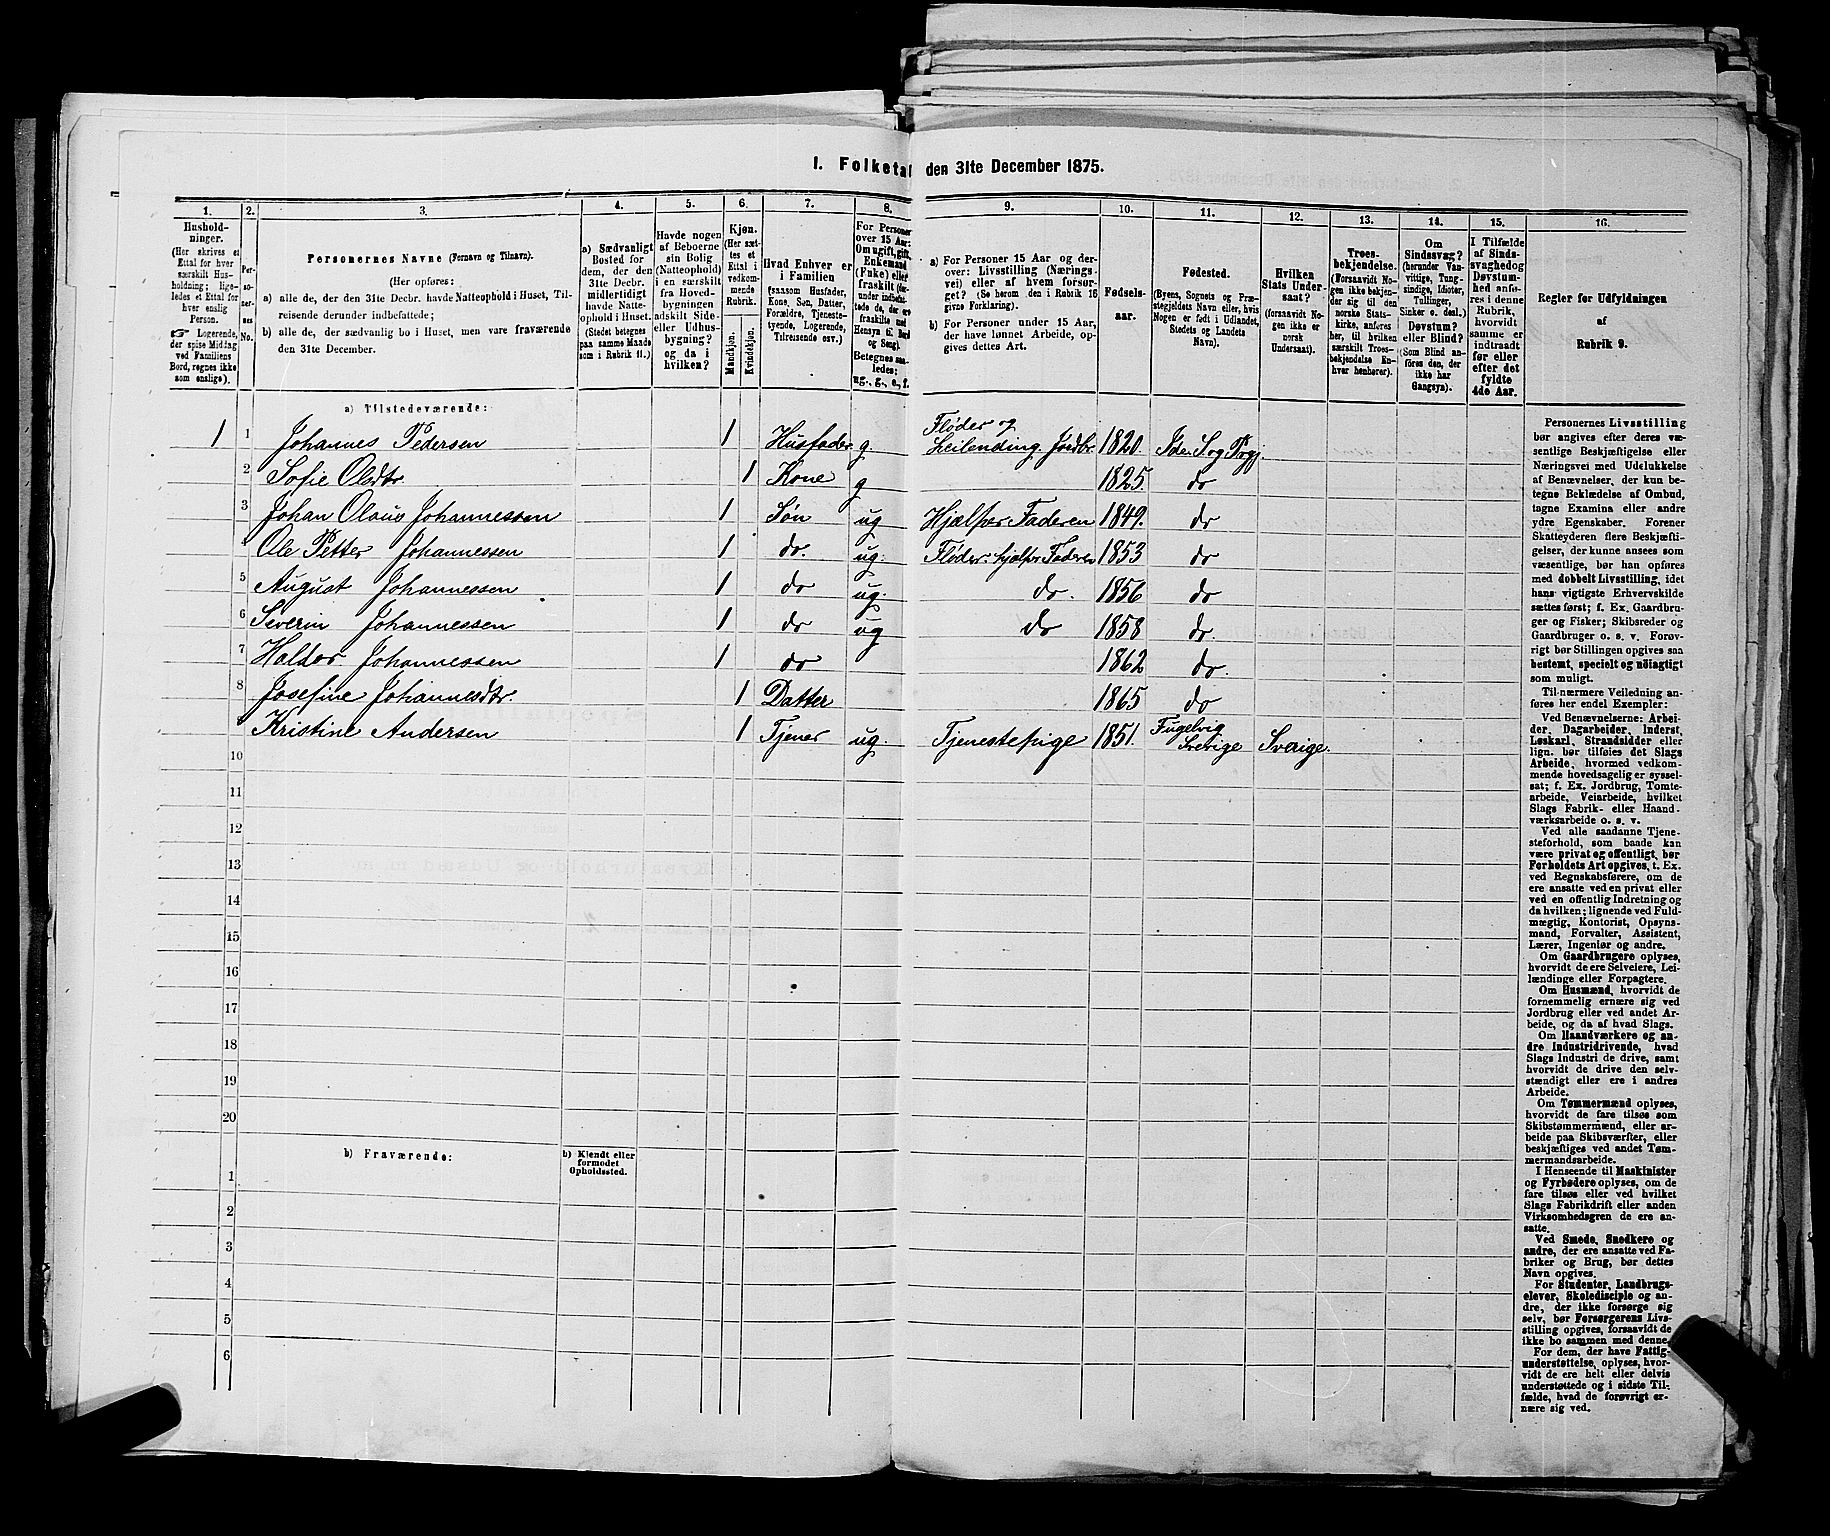 1. Folketal den 31te December 1875.
1. 2. 3. 4. 5. 6. 7. 8. 9. 10. 11. 12. 13. 14. 15. 16.
Hushold-
ninger.
(Her skrives et
Ettal for hver
særskilt Hus-
holdning; lige-
ledes et Ettal for
hver enslig
Person.
☞ Logerende,
der spise Middag
ved Familiens
Bord, regnes ikke
som enslige).
Per-
so-
ner-
nes
No.
Personernes Navne (Fornavn og Tilnavn).
(Her opføres:
a) alle de, der den 31te Decbr. havde Natteophold i Huset, Til-
reisende derunder indbefattede;
b) alle de, der sædvanlig bo i Huset, men vare fraværende
den 31te December.
a) Sædvanligt
Bosted for
dem, der den
31te Decbr.
midlertidigt
havde Natte-
ophold i Huset.
(Stedet betegnes
paa samme Maade
som i Rubrik 11.)
Havde nogen
af Beboerne
sin Bolig
(Natteophold)
i en særskilt
fra Hoved-
bygningen
adskilt Side-
eller Udhus-
bygning?
og da i
hvilken?
Kjøn.
(Her sæt-
tes et
Ettal i
vedkom-
mende
Rubrik.
Mandkjøn.
Kvindekjøn.
Hvad Enhver er
i Familien
(saasom Husfader,
Kone, Søn, Datter,
Forældre, Tjeneste-
tyende, Logerende,
Tilreisende osv.)
For Personer
over 15 Aar:
Om ugift, gift,
Enkemand
(Enke) eller
fraskilt
Betegnes saa-
ledes:
ug., g., e., f.
a) For Personer 15 Aar og der-
over: Livsstilling (Nærings-
vei) eller af hvem forsør-
get? (Se herom den i Rubrik 16
givne Forklaring).
b) For Personer under 15 Aar,
der have lønnet Arbeide, op-
gives dettes Art.
Fødsels-
aar.
Fødested.
(Byens, Sognets og Præ-
stegjeldets Navn eller, hvis
Nogen er født i Udlandet,
Stedets og Landets
Navn).
Hvilken
Stats Under-
saat?
(forsaavidt No-
gen ikke er
norsk
Undersaat).
Troes-
bekjendelse.
(Forsaavidt No-
gen ikke bekjen-
der sig til den
norske Stats-
kirke, anføres
her, til hvilken
særskilt Troes-
bekjendelse En-
hver henhører).
Om
Sindssvag?
(herunder Van-
vittige, Tung-
sindige, Idioter,
Tullinger,
Sinker o. desl.)
Døvstum?
eller Blind?
(Som Blind an-
føres den, der
ikke har
Gangsyn).
I Tilfælde
af Sinds-
svaghed og
Døvstum-
hed anfø-
res i denne
Rubrik,
hvorvidt
samme er
indtraadt
før eller
efter det
fyldte
4de Aar.
Regler for Udfyldningen
af
Rubrik 9.
a) Tilstedeværende:
1 1 Johannes Pedersen 1 Husfader g. Fløder og Leilending. Jordbr. 1820. Ide S. og Prgj.
2 Sofie Olsdtr 1 Kone g 1825. do
3 Johan Olaus Johannessen 1 Søn ug Hjælper Faderen 1849. do
4 Ole Petter Johannessen 1 do. ug. Fløder. hjælper Faderen 1853 do
5 August Johannessen 1 do ug. do. 1856 do
6 Severin Johannessen 1 do ug do 1858 do.
7 Halder Johannessen 1 do 1862 do.
8 Josefine Johannesdtr. 1 Datter 1865 do
9 Kristine Andersen 1 Tjener ug. Tjenestepige 1851. Fugelvig Sverige Sverige.
10
11
12
13
14
15
16
17
18
19
20
b) Fraværende:
b) Kjendt eller
formodet
Opholdssted.
1
2
3
4
5
6
Personernes Livsstilling
bør angives efter deres væ-
sentlige Beskjæftigelse eller
Næringsvei med Udelukkelse
af Benævnelser, der kun be-
tegne Beklædelse af Ombud,
tagne Examina eller andre
ydre Egenskaber. Forener
Skatteyderen flere Beskjæfti-
gelser, der kunne ansees som
væsentlige, bør han opføres
med dobbelt Livsstilling, idet
hans vigtigste Erhvervskilde
sættes først; f. Ex. Gaardbru-
ger og Fisker; Skibsreder og
Gaardbruger o. s. v. Forøv-
rigt bør Stillingen opgives saa
bestemt, specielt og nöiagtigt
som muligt.
Til nærmere Veiledning an-
føres her endel Exempler:
Ved Benævnelserne: Arbei-
der, Dagarbeider, Inderst,
Løskarl, Strandsidder eller
lign. bør tilføies det Slags
Arbeide, hvormed vedkom-
mende hovedsagelig er syssel-
sat; f. Ex. Jordbrug, Tomte-
arbeide, Veiarbeide, hvilket
Slags Fabrik- eller Haand-
værksarbeide o. s. v.
Ved alle saadanne Tjene-
steforhold, som baade kan
være privat og offentligt, bør
Forholdets Art opgives, t. Ex.
ved Regnskabsførere, om de
ere ansatte ved en privat eller
ved en offentlig Indretning og
da hvilken; lignende ved Fuld-
mægtig, Kontorist, Opsyns-
mand, Forvalter, Assistent,
Lærer, Ingeniør og andre.
Om Gaardbrugere oplyses,
hvorvidt de ere Selveiere, Lei-
lændinge eller Forpagtere.
Om Husmænd, hvorvidt de
fornemmelig ernære sig ved
Jordbrug eller ved andet Ar-
beide, og da af hvad Slags.
Om Haandværkere og an-
dre Industridrivende, hvad
Slags Industri de drive, samt
hvorvidt de drive den selv-
stændigt eller ere i andres
Arbeide.
Om Tømmermænd oplyses,
hvorvidt de fare tilsøs som
Skibstømmermænd, eller ar-
beide paa Skibsværfter, eller
beskjæftiges ved andet Tøm-
mermandsarbeide.
I Henseende til Maskinister
og Fyrbødere oplyses, om de
fare tilsøs eller ved hvilket
Slags Fabrikdrift eller anden
Virksomhedsgren de ere an-
satte.
Ved Smede, Snedkere og
andre, der ere ansatte ved Fa-
briker og Brug, bør dettes
Navn opgives.
For Studenter, Landbrugs-
elever, Skoledisciple og an-
dre, der ikke forsørge sig
selv, bør Forsørgerens Livs-
stilling opgives, forsaavidt de
ikke bo sammen med denne.
For dem, der have Fattig-
understøttelse, oplyses, hvor-
vidt de ere helt eller delvis
understøttede og i sidste Til-
fælde, hvad de forøvrigt er-
nære sig ved.